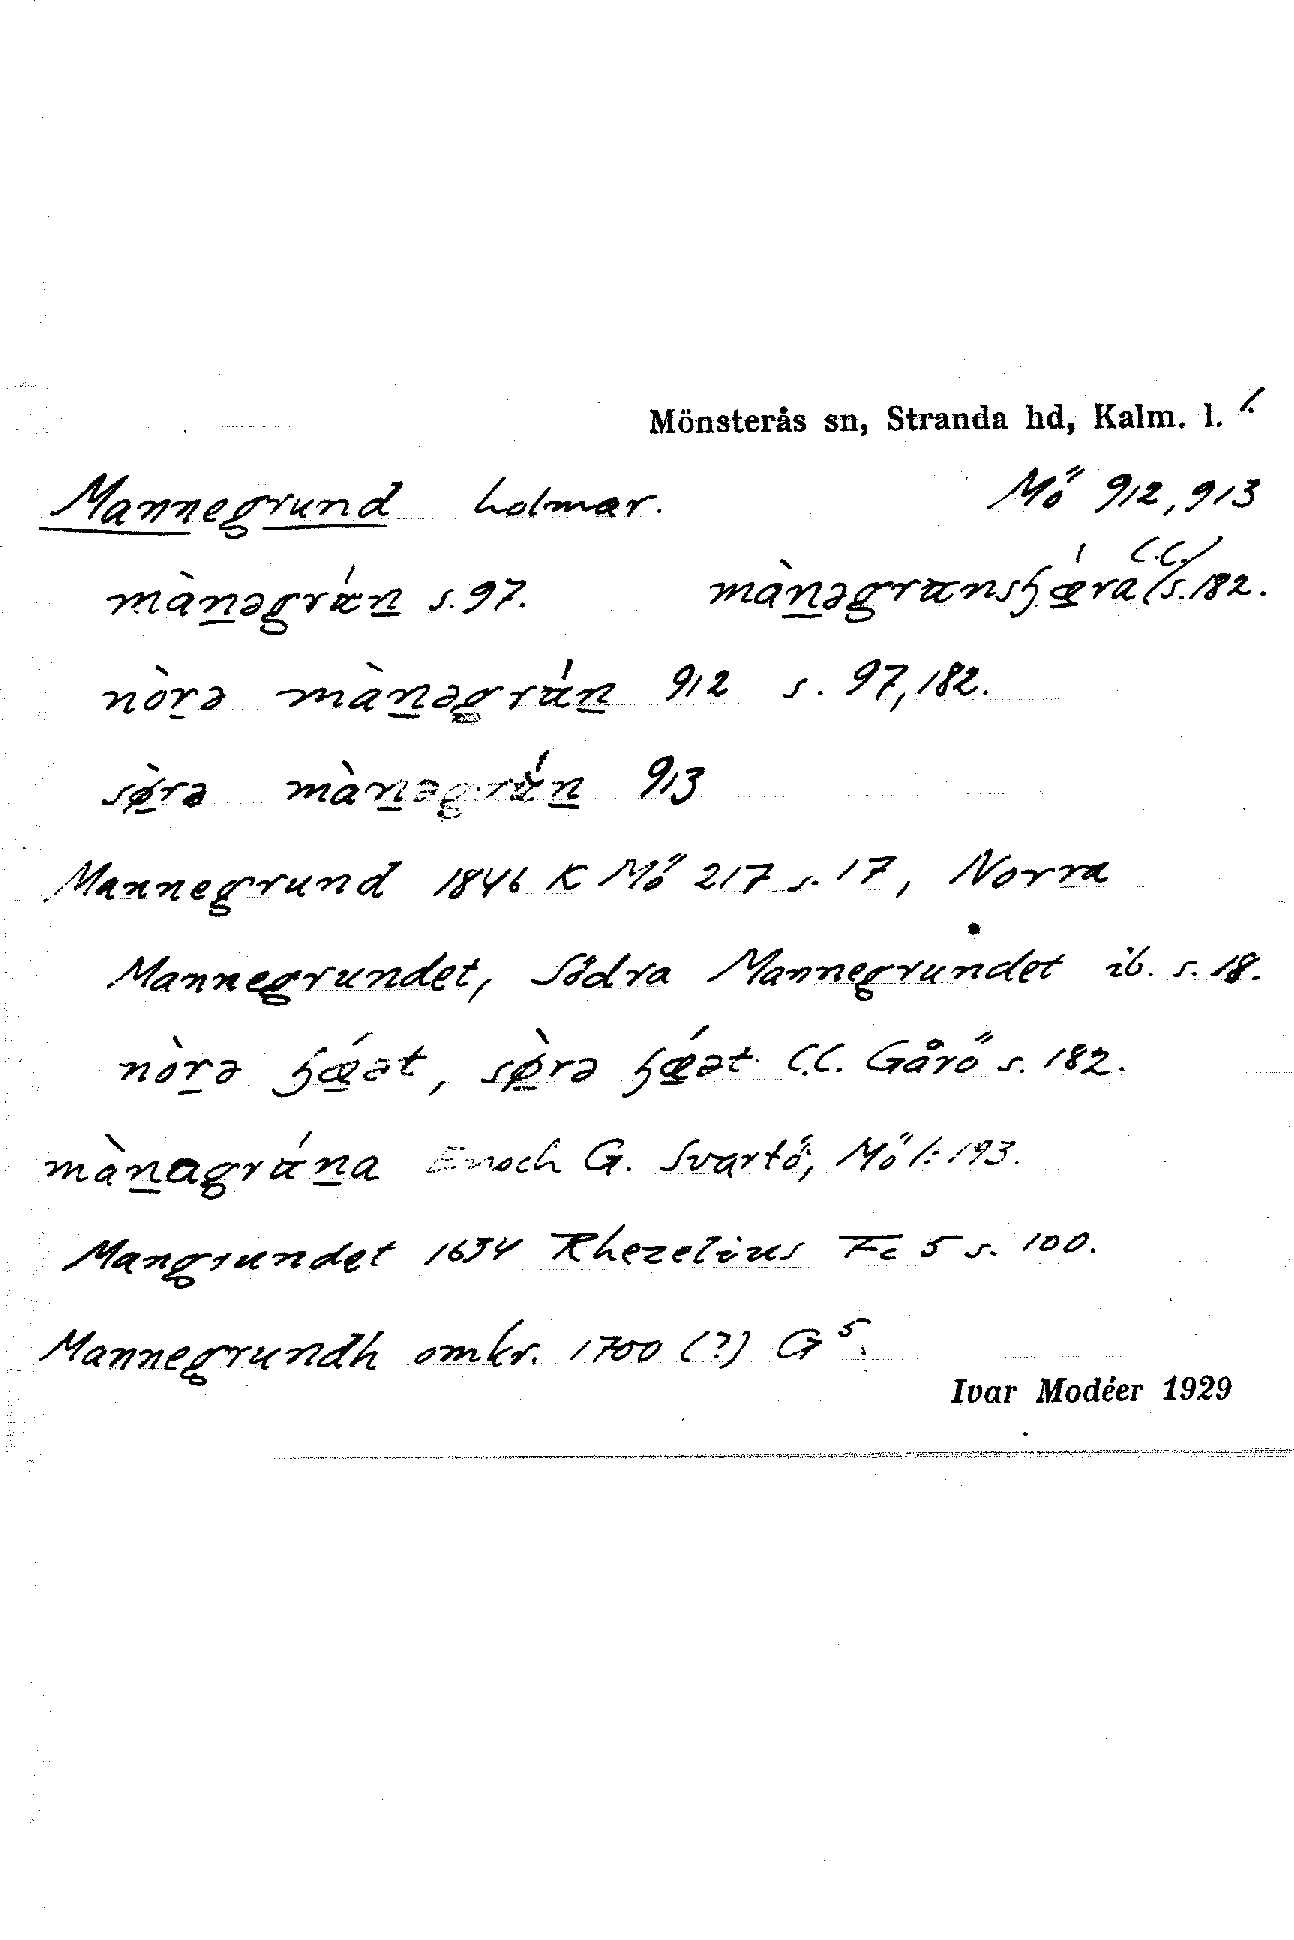 Mönsterås sn, Stranda hd, Kalm. l. 1.
Mannegrund holmar. Mö 912, 913
s. 97. (C.C.) s. 182.
nòrə 912 s. 97, 182.
sø̀rə 913
Mannegrund 1846 K Mö 217 s. 17, Norra
Mannegrundet, Södra Mannegrundet ib. s. 18.
nòrə sø̀rə C.C. Gårö s. 182.
Enoch G. Svartö, Mö 1:193.
Mangrundet 1634 Rhezelius Fc 5 s. 100.
Mannegrundh omkr. 1700 (?) G 5.
Ivar Modéer 1929